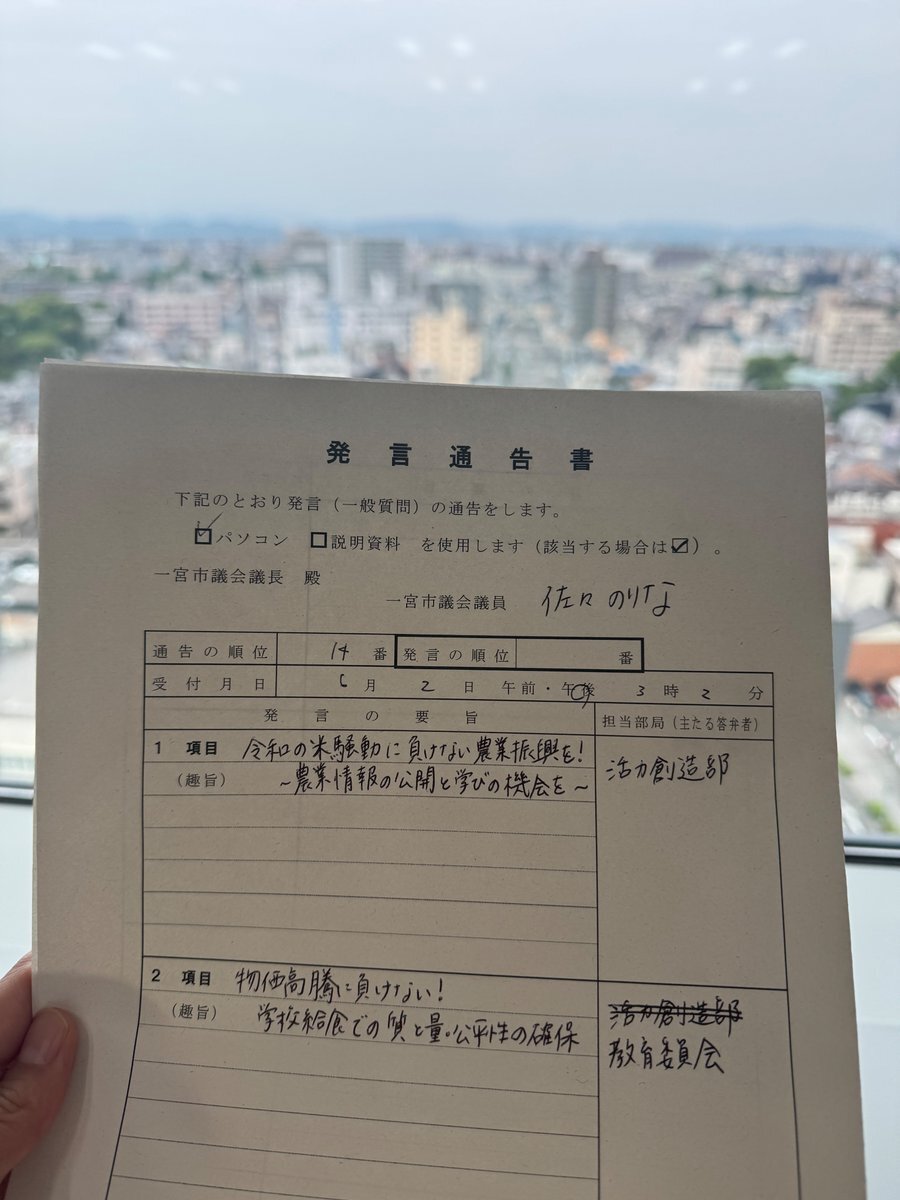 発言通告書
下記のとおり発言（一般質問）の通告をします。
☑パソコン □説明資料 を使用します（該当する場合は☑）。
一宮市議会議長 殿
一宮市議会議員 佐々 のりな
通告の順位 14 番 発言の順位 番
受付月日 6月 2日 午前・午後 3時 2分
発言の要旨 担当部局（主たる答弁者）
1 項目 令和の米騒動に負けない農業振興を! 活力創造部
（趣旨） ～農業情報の公開と学びの機会を～
2 項目 物価高騰に負けない! 活力創造部
（趣旨） 学校給食での質と量・公平性の確保 教育委員会